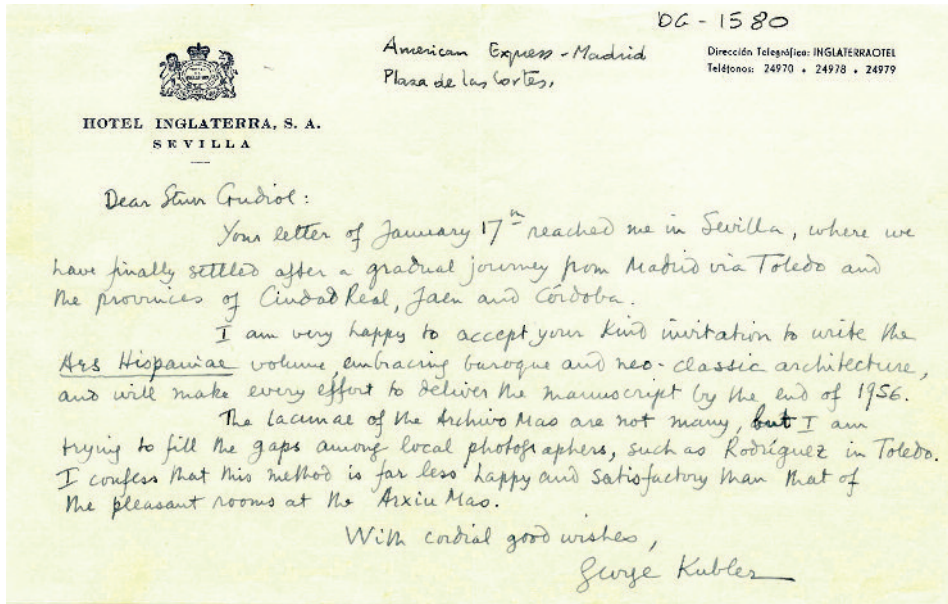 DG-1580
American Express-Madrid
Plaza de Las Cortes,
Dirección Telegráfica: INGLATERRAOTEL
Teléfonos: 24970 • 24978 • 24979
HOTEL INGLATERRA, S. A.
SEVILLA
Dear Gudiol:
Your letter of January 17th reached me in Sevilla, where we
have finally settled after a gradual journey from Madrid via Toledo and
the provinces of Ciudad Real, Jaen and Córdoba.
I am very happy to accept your kind invitation to write the
Ars Hispaniae volume, embracing baroque and neo-classic architecture,
and will make every effort to deliver the manuscript by the end of 1956.
The lacunae of the Archivo Mas are not many, but I am
trying to fill the gaps among local photographers, such as Rodríguez in Toledo.
I confess that this method is far less happy and satisfactory than that of
the pleasant rooms at the Arxiu Mas.
With cordial good wishes,
George Kubler